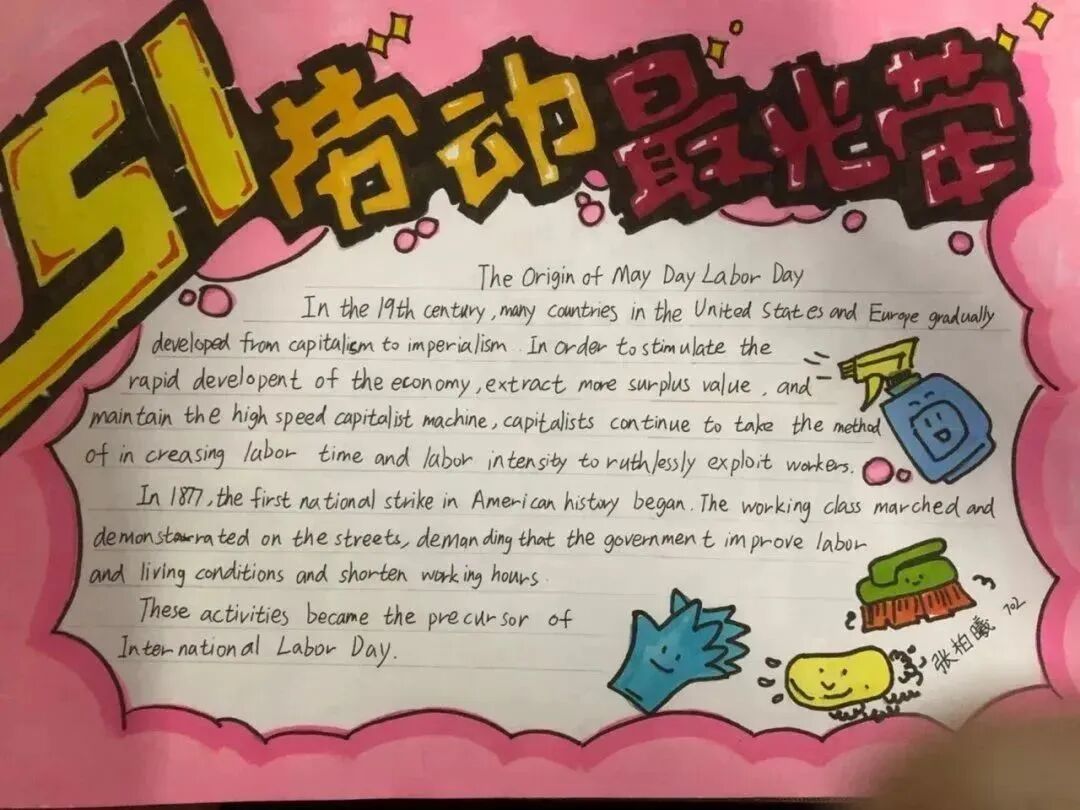 51劳动最光荣
The Origin of May Day Labor Day
In the 19th century, many countries in the United States and Europe gradually
developed from capitalism to imperialism. In order to stimulate the
rapid developent of the economy, extract more surplus value, and
maintain the high speed capitalist machine, capitalists continue to take the method
of in creasing labor time and labor intensity to ruthlessly exploit workers.
In 1877, the first national strike in American history began. The working class marched and
demonstrated on the streets, demanding that the government improve labor
and living conditions and shorten working hours.
These activities became the precursor of
International Labor Day.
张柏曦 702